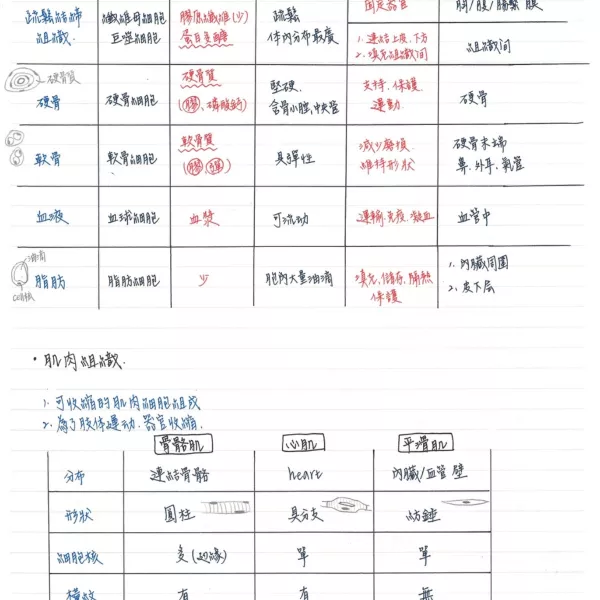 疏鬆結締 纖維母細胞 膠原纖維(少) 疏鬆 固定器官 腸/腹/腸繫膜
組織 巨噬細胞 蛋白多醣 體內分布最廣 1. 連結上皮、下方 組織間
2. 填充組織間
硬骨質
硬骨 硬骨細胞 硬骨質 堅硬 支持、保護 硬骨
(膠、磷酸鈣) 含骨小腔、中央管 運動
軟骨 軟骨細胞 軟骨質 具彈性 減少磨損 硬骨末端
(膠、醣) 維持形狀 鼻、外耳、氣管
血液 血球細胞 血漿 可流動 運輸、免疫、凝血 血管中
油滴
脂肪 脂肪細胞 少 胞內大量油滴 填充、儲存、隔熱 1. 內臟周圍
細胞核 保護 2. 皮下层
· 肌肉組織.
1. 可收縮的肌肉細胞組成
2. 為了肢体運动、器官收縮.
骨骼肌 心肌 平滑肌
分布 連結骨骼 heart 內臟/血管 壁
形狀 圓柱 具分支 紡錘
細胞核 多(边緣) 單 單
橫紋 有 有 無